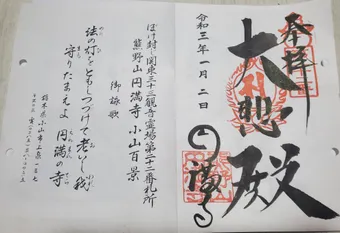 奉拝
大悲殿
令和三年一月二日
ぼけ封じ関東三十三観音霊場第二十二番札所
熊野山円満寺 小山百景
御詠歌
法の灯をともしつづけて老いし我
守りたまえよ 円満の寺
栃木県小山市